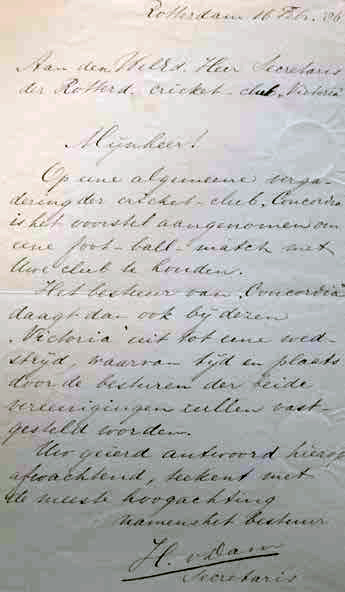 Rotterdam 16 Febr. 86
Aan den WelEd. Heer Secretaris
der Rotterd. cricket-club „Victoria”
Mijnheer!
Op eene algemeene verga-
dering der cricket-club „Concordia
is het voorstel aangenomen om
eene foot-ball-match met
Uwe club te houden.
Het bestuur van „Concordia”
daagt dan ook bij dezen
„Victoria” uit tot eene wed-
strijd, waarvan tijd en plaats
door de besturen der beide
vereenigingen zullen vast-
gesteld worden.
Uw geëerd antwoord hierop
afwachtend, teekent met
de meeste hoogachting
namens het bestuur
H. v Dam
Secretaris